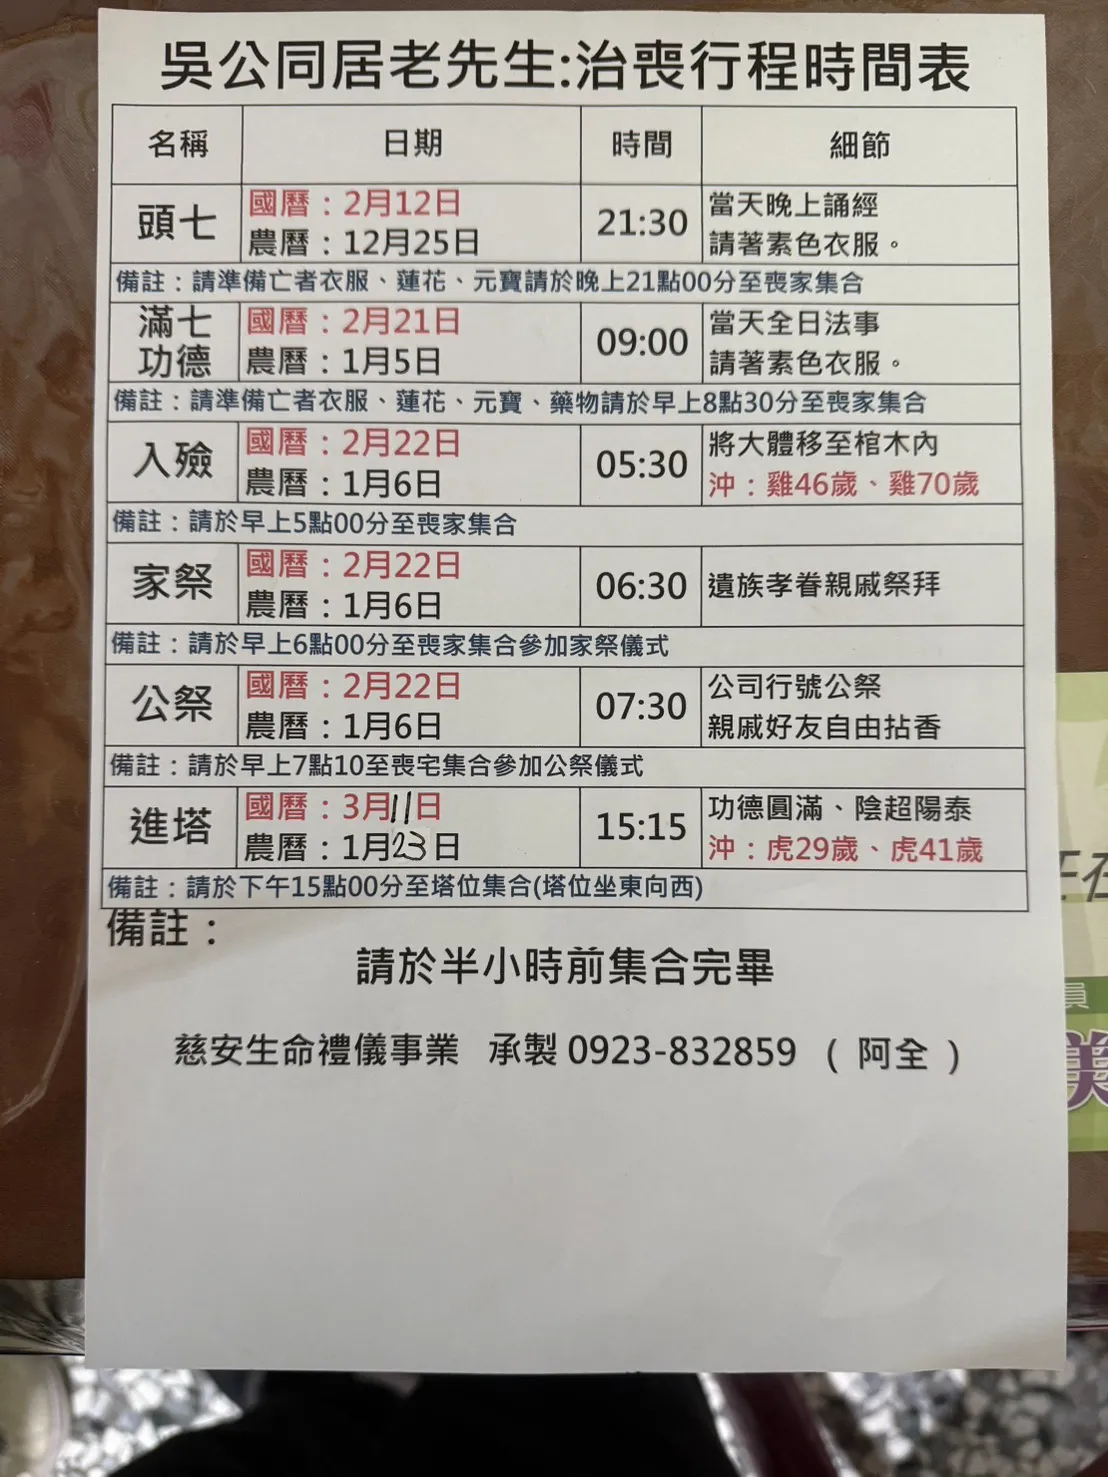 吳公同居老先生:治喪行程時間表
名稱 日期 時間 細節
頭七 國曆：2月12日 21:30 當天晚上誦經
農曆：12月25日 請著素色衣服。
備註：請準備亡者衣服、蓮花、元寶請於晚上21點00分至喪家集合
滿七 國曆：2月21日 09:00 當天全日法事
功德 農曆：1月5日 請著素色衣服。
備註：請準備亡者衣服、蓮花、元寶、藥物請於早上8點30分至喪家集合
入殮 國曆：2月22日 05:30 將大體移至棺木內
農曆：1月6日 沖：雞46歲、雞70歲
備註：請於早上5點00分至喪家集合
家祭 國曆：2月22日 06:30 遺族孝眷親戚祭拜
農曆：1月6日
備註：請於早上6點00分至喪家集合參加家祭儀式
公祭 國曆：2月22日 07:30 公司行號公祭
農曆：1月6日 親戚好友自由拈香
備註：請於早上7點10至喪宅集合參加公祭儀式
進塔 國曆：3月11日 15:15 功德圓滿、陰超陽泰
農曆：1月23日 沖：虎29歲、虎41歲
備註：請於下午15點00分至塔位集合(塔位坐東向西)
備註：
請於半小時前集合完畢
慈安生命禮儀事業 承製 0923-832859 （阿全）
員
美